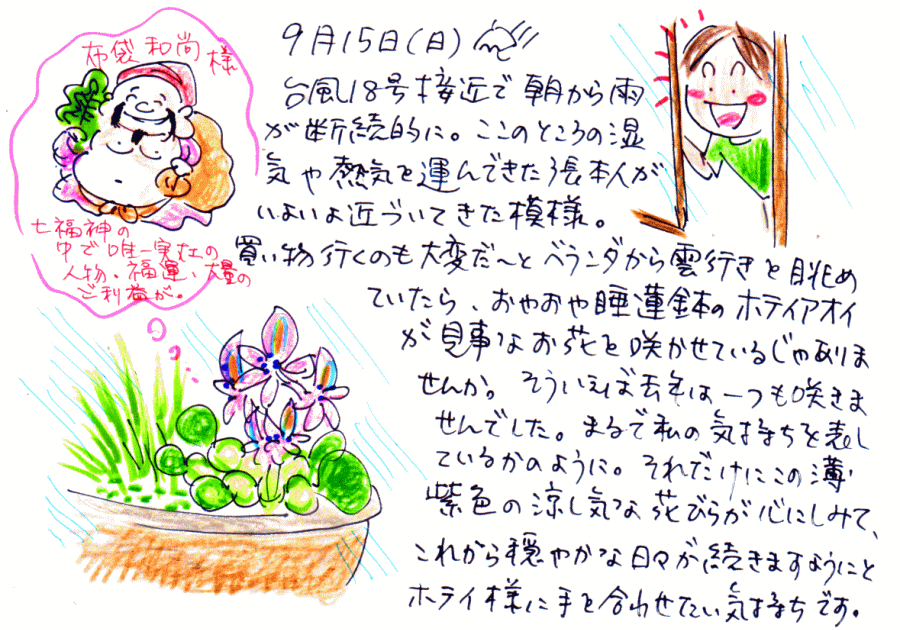 布袋和尚様
七福神の
中で唯一実在の
人物、福運、大量の
ご利益が。
9月15日(日)
台風18号接近で朝から雨
が断続的に。ここのところの湿
気や熱気を運んできた張本人が
いよいよ近づいてきた模様。
買い物行くのも大変だ〜とベランダから雲行きを眺め
ていたら、おやおや睡蓮鉢のホテイアオイ
が見事なお花を咲かせているじゃありま
せんか。そういえば去年は一つも咲きま
せんでした。まるで私の気持ちを表し
ているかのように。それだけにこの薄
紫色の涼し気な花びらが心にしみて、
これから穏やかな日々が続きますようにと
ホテイ様に手を合わせたい気持ちです。